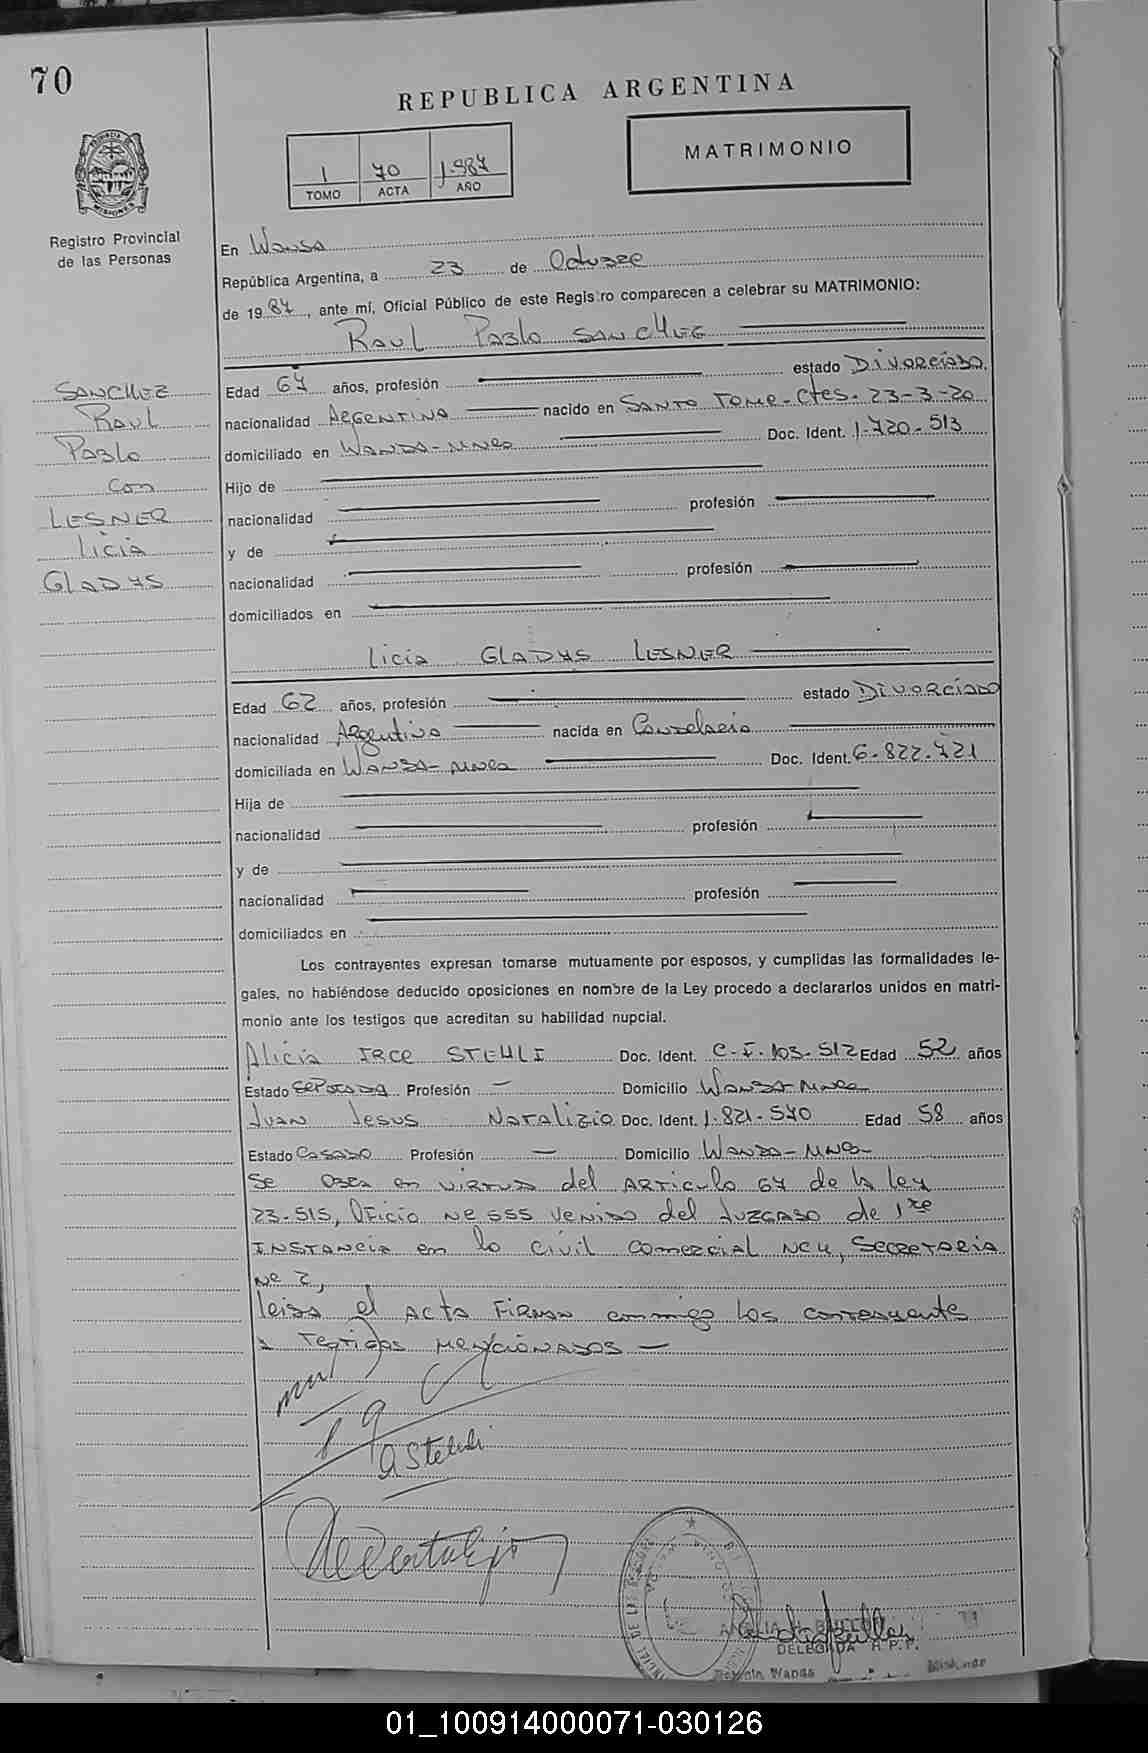 70
REPUBLICA ARGENTINA
1 70 1.987
TOMO ACTA AÑO
MATRIMONIO
Registro Provincial
de las Personas
En Wanda
República Argentina, a 23 de Octubre
de 1987, ante mí, Oficial Público de este Registro comparecen a celebrar su MATRIMONIO:
Raul Pablo SANCHEZ
SANCHEZ
Raul
Pablo
con
LESNER
Licia
GLADYS
Edad 67 años, profesión estado Divorciado
nacionalidad Argentino nacido en SANTO TOME-Ctes. 23-3-20
domiciliado en WANDA-Mnes Doc. Ident. 1.720.513
Hijo de
nacionalidad profesión
y de
nacionalidad profesión
domiciliados en
Licia GLADYS LESNER
Edad 62 años, profesión estado Divorciado
nacionalidad Argentina nacida en Candelaria
domiciliada en WANDA-Mnes Doc. Ident. 6.822.721
Hija de
nacionalidad profesión
y de
nacionalidad profesión
domiciliados en
Los contrayentes expresan tomarse mutuamente por esposos, y cumplidas las formalidades le-
gales, no habiéndose deducido oposiciones en nombre de la Ley procedo a declararlos unidos en matri-
monio ante los testigos que acreditan su habilidad nupcial.
Alicia IRCE STEHLI Doc. Ident. C-I-103-512 Edad 52 años
Estado Profesión - Domicilio WANDA-Mnes
Juan Jesus Natalizio Doc. Ident. 1.821.570 Edad 58 años
Estado CASADO Profesión - Domicilio WANDA-Mnes
Se en virtud del ARTiculo 67 de la ley
23.515, Oficio Nº 555 venido del Juzgado de 1re
INSTANCia en lo civil comercial Nº 4, SecreTARIA
Nº 2,
leida el ACTA FIRMAN conmigo los contrayente
y TesTigos MENCIONADOS -
a Stehli
DELEGADA R.P.P.
Wanda
01_100914000071-030126